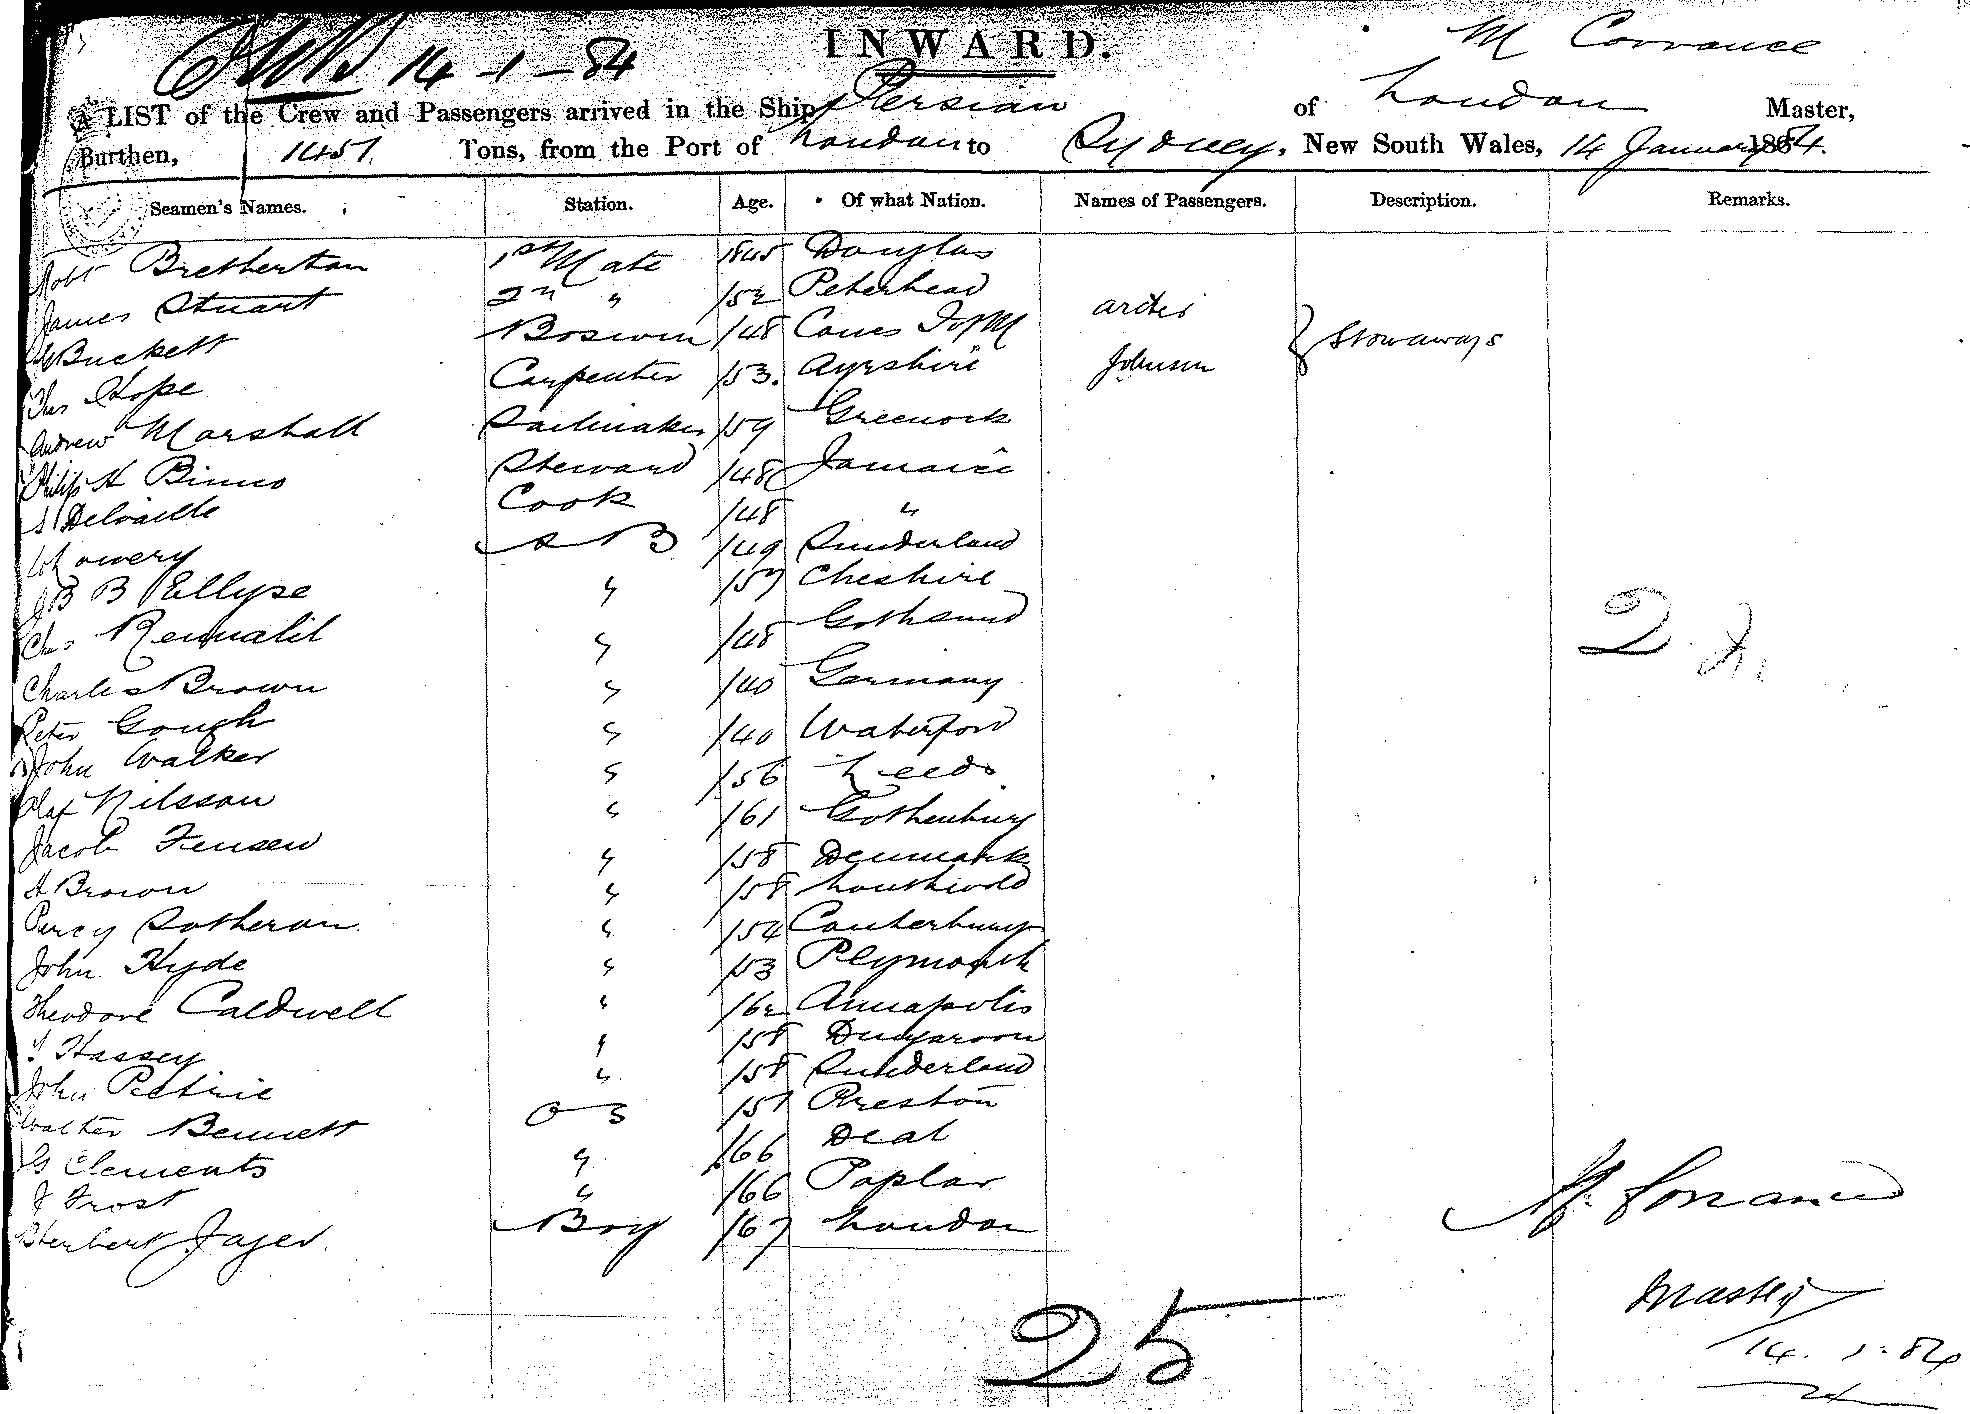 14-1-84
INWARD.
M Corrance
A LIST of the Crew and Passengers arrived in the Ship Persian of London Master,
Burthen, 1451 Tons, from the Port of London to Sydney, New South Wales, 14 January 1884.
Seamen's Names. Station. Age. Of what Nation. Names of Passengers. Description. Remarks.
Robt Bretherton 1st Mate 1845 Douglas
James Stuart 2n " /52 Peterhead
Buckett Boswn /48 Cowes I of M
Artis
Johnson
} Stowaways
Thos Hope Carpenter /53. Ayrshire
Andrew Marshall Sailmaker /59 Greenock
Philip H Binns Steward /48 Jamaica
Delvaille Cook /48 "
Lowery A B /49 Sunderland
J B B Ellyse " /57 Cheshire
Chas " /48
Charles Brown " /40 Germany
Peter Gough " /40 Waterford
John Walker " /56 Leeds
Olaf Nilsson " /61 Gothenburg
Jacob Jensen " /58 Denmark
H Brown " /58
Percy Sotheran " /54 Canterbury
John Hyde " /53 Plymouth
Theodore Caldwell " /62 Annapolis
Hassey " /58
John Petrie " /58 Sunderland
Walter Bennett O S /51 Preston
G Clements " /66 Deal
J Frost " /66 Poplar
Herbert Jager Boy /67 London
2
25
M. Corrance
Master
14. 1. 84